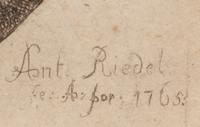 Ant. Riedel
fe: A: for: 1765.